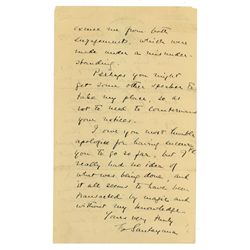 excuse me from both
engagements, which were
made under a misunder-
standing.
Perhaps you might
get some other speaker to
take my place, so as
not to need to countermand
your notices.
I owe you most humble
apologies for having
you to go so far, but I
really had no idea of
what was being done, and
it all seems to have been
transacted by magic and
without my knowledge.
Yours very truly
G Santayana